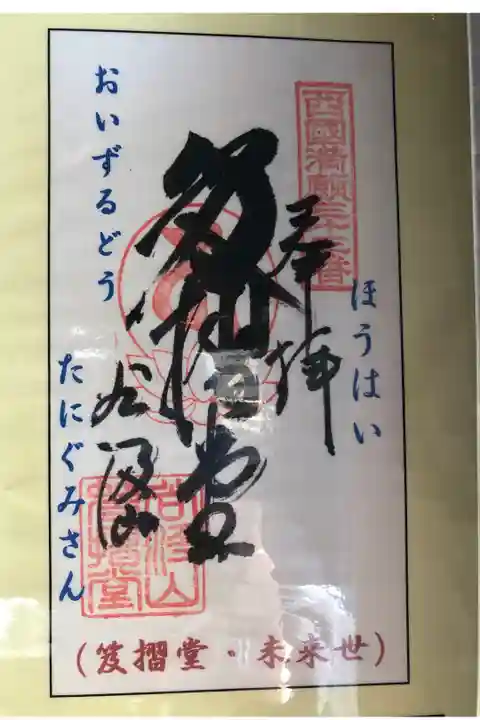 西國満願三十三番
奉拝
ほうはい
笈摺堂
おいずるどう
谷汲山
たにぐみさん
谷汲山
笈摺堂
(笈摺堂・未来世)